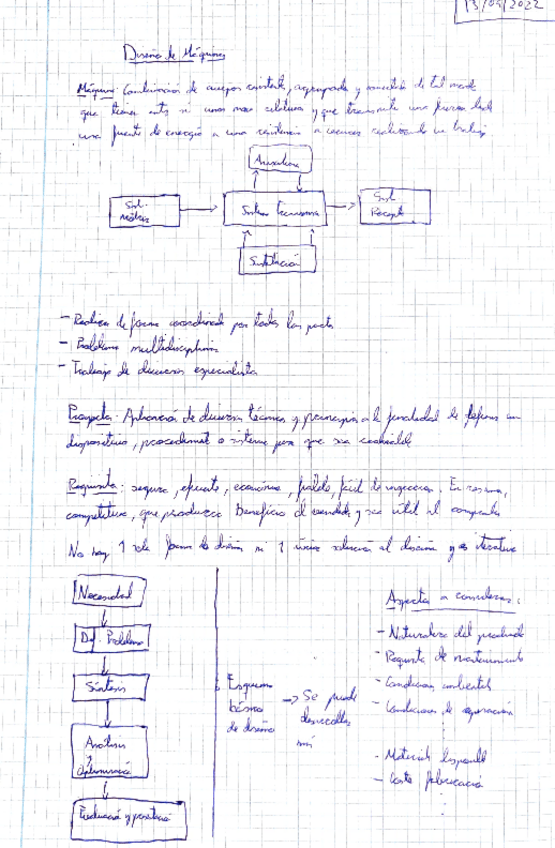 13/09/2022
Diseño de Máquinas
Máquina: Combinación de cuerpos resistente, agrupada y de tal modo
que entre si unos y que transmite una fuerza desde
una fuente de energía a una resistencia a vencer realizando un trabajo
Auxiliares
Sist. Motriz
Sist. Transmisión
Sist. Recept
Sustentación
- Realiza de forma coordinada por todas las partes
- Problema multidisciplinar
- Trabajo de diversos especialistas
Proyecto: Aplicación de diversas técnicas y principios a la finalidad de definir un
dispositivo, procedimiento o sistema para que sea realizable
Requisitos: seguro, eficiente, económico, fiable, fácil de inspeccionar. En resumen,
competitivo, que produzca beneficio al vendedor y sea útil al comprador
No hay 1 sola forma de diseño ni 1 única solución al diseño y es iterativo
Necesidad
Def. Problema
Síntesis
Análisis
Optimización
Evaluación y
Esquema
básico
de diseño
→ Se puede
desarrollar
más
Aspectos a considerar:
- Naturaleza del producto
- Requisitos de mantenimiento
- Condiciones ambientales
- Condiciones de operación
- Materiales
- Coste fabricación